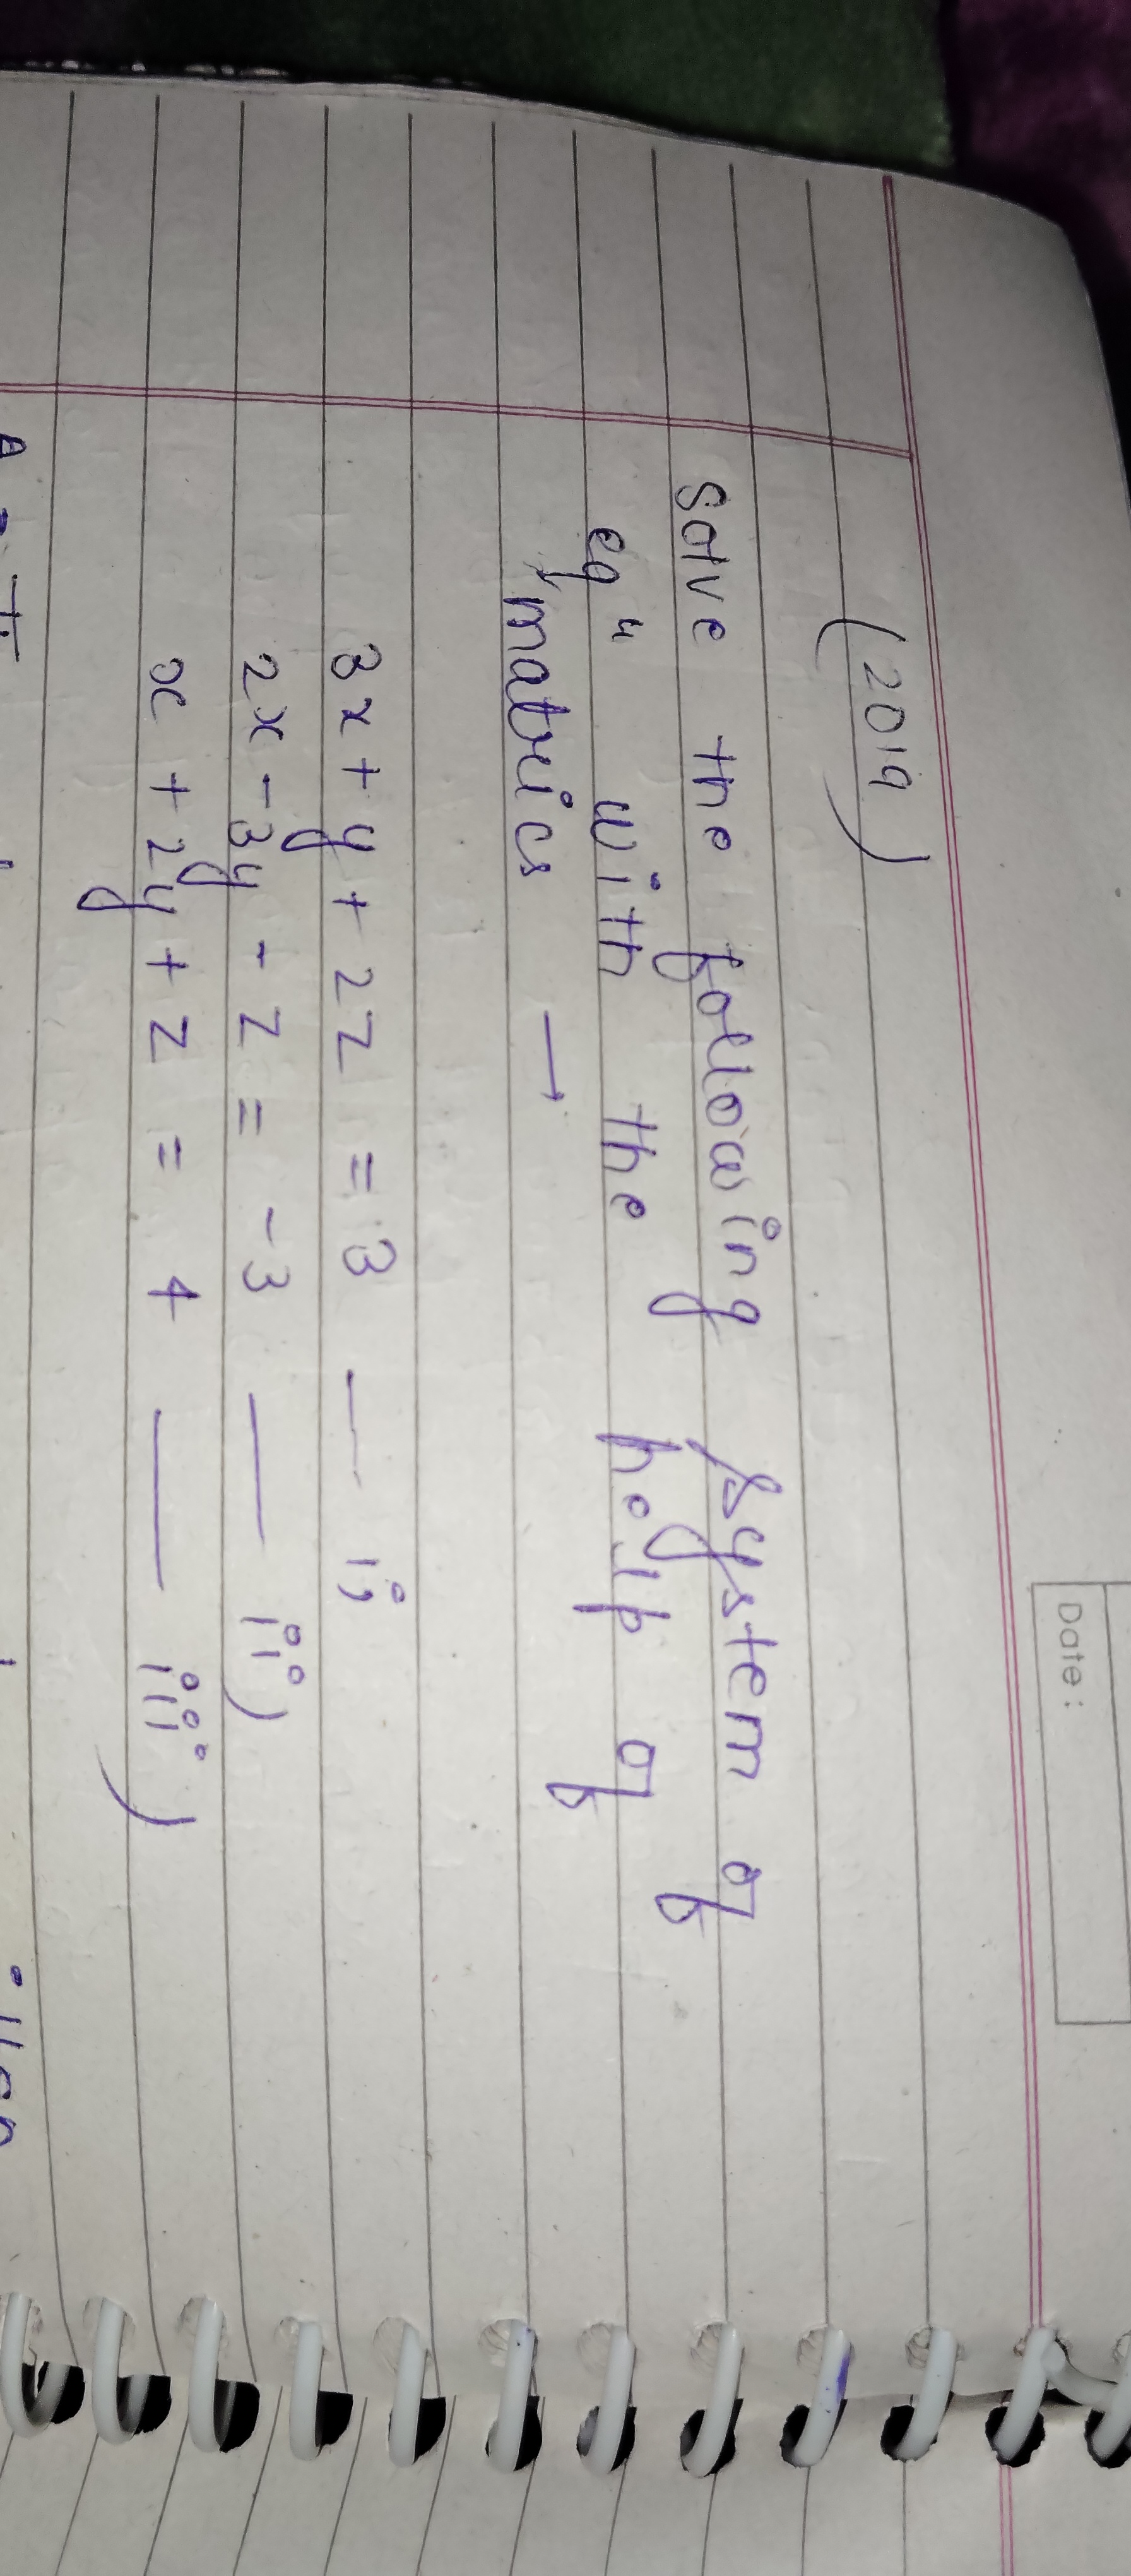 Date :
(2019)
Solve the following system of
eqⁿ with the help of
matrics →
3x + y + 2z = 3 — i)
2x - 3y - z = -3 — ii)
x + 2y + z = 4 — iii)